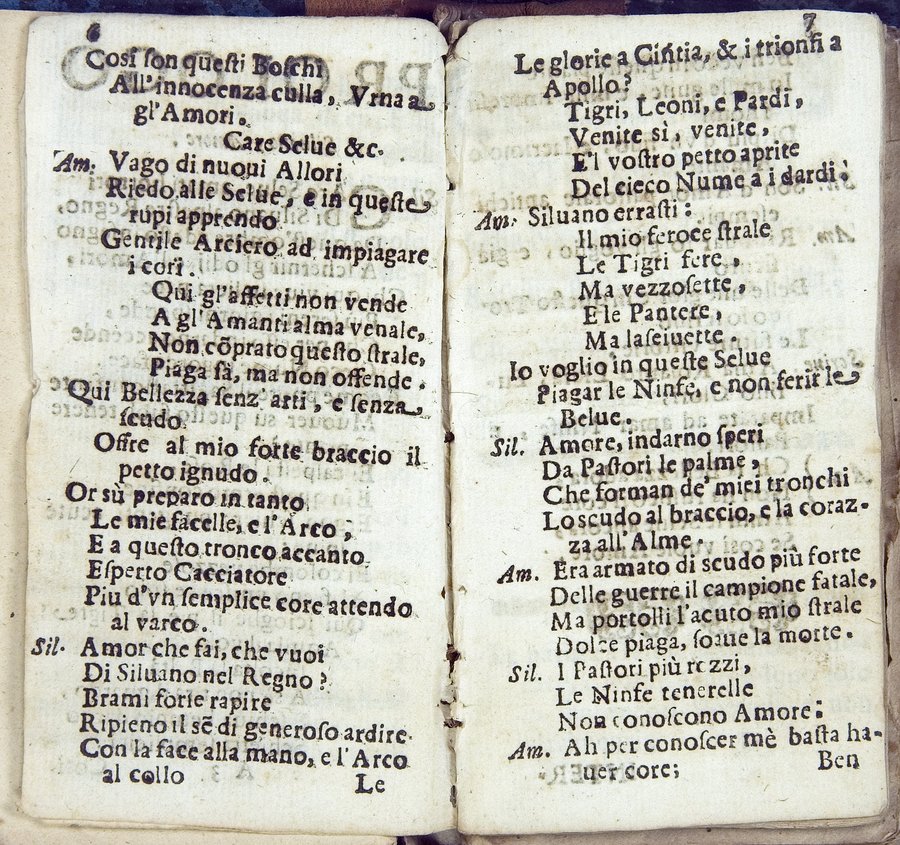 6
Così son questi Boschi
All'innocenza culla, Vrna a
gl'Amori.
Care Selue &c.
Am. Vago di nuoui Allori
Riedo alle Selue, e in queste
rupi apprendo
Gentile Arciero ad impiagare
i cori.
Qui gl'affetti non vende
A gl'Amanti alma venale,
Non cõprato questo strale,
Piaga sà, ma non offende.
Qui Bellezza senz' arti, e senza
scudo
Offre al mio forte braccio il
petto ignudo.
Or sù preparo in tanto
Le mie facelle, e l'Arco,
E a questo tronco accanto
Esperto Cacciatore
Piu d'vn semplice core attendo
al varco.
Sil. Amor che fai, che vuoi
Di Siluano nel Regno?
Brami forse rapire
Ripieno il sẽ di generoso ardire
Con la face alla mano, e l'Arco
al collo
Le
7
Le glorie a Cintia, & i trionfi a
Apollo?
Tigri, Leoni, e Pardi,
Venite sì, venite,
E'l vostro petto aprite
Del cieco Nume a i dardi.
Am. Siluano errasti:
Il mio feroce strale
Le Tigri fere,
Ma vezzosette,
E le Pantere,
Ma lasciuette.
Io voglio in queste Selue
Piagar le Ninfe, e non ferir le
Belue.
Sil. Amore, indarno speri
Da Pastori le palme,
Che forman de' miei tronchi
Lo scudo al braccio, e la coraz-
za all'Alme.
Am. Era armato di scudo più forte
Delle guerre il campione fatale,
Ma portolli l'acuto mio strale
Dolce piaga, soaue la morte.
Sil. I Pastori più rozzi,
Le Ninfe tenerelle
Non conoscono Amore:
Am. Ah per conoscer mè basta ha-
uer core;
Ben